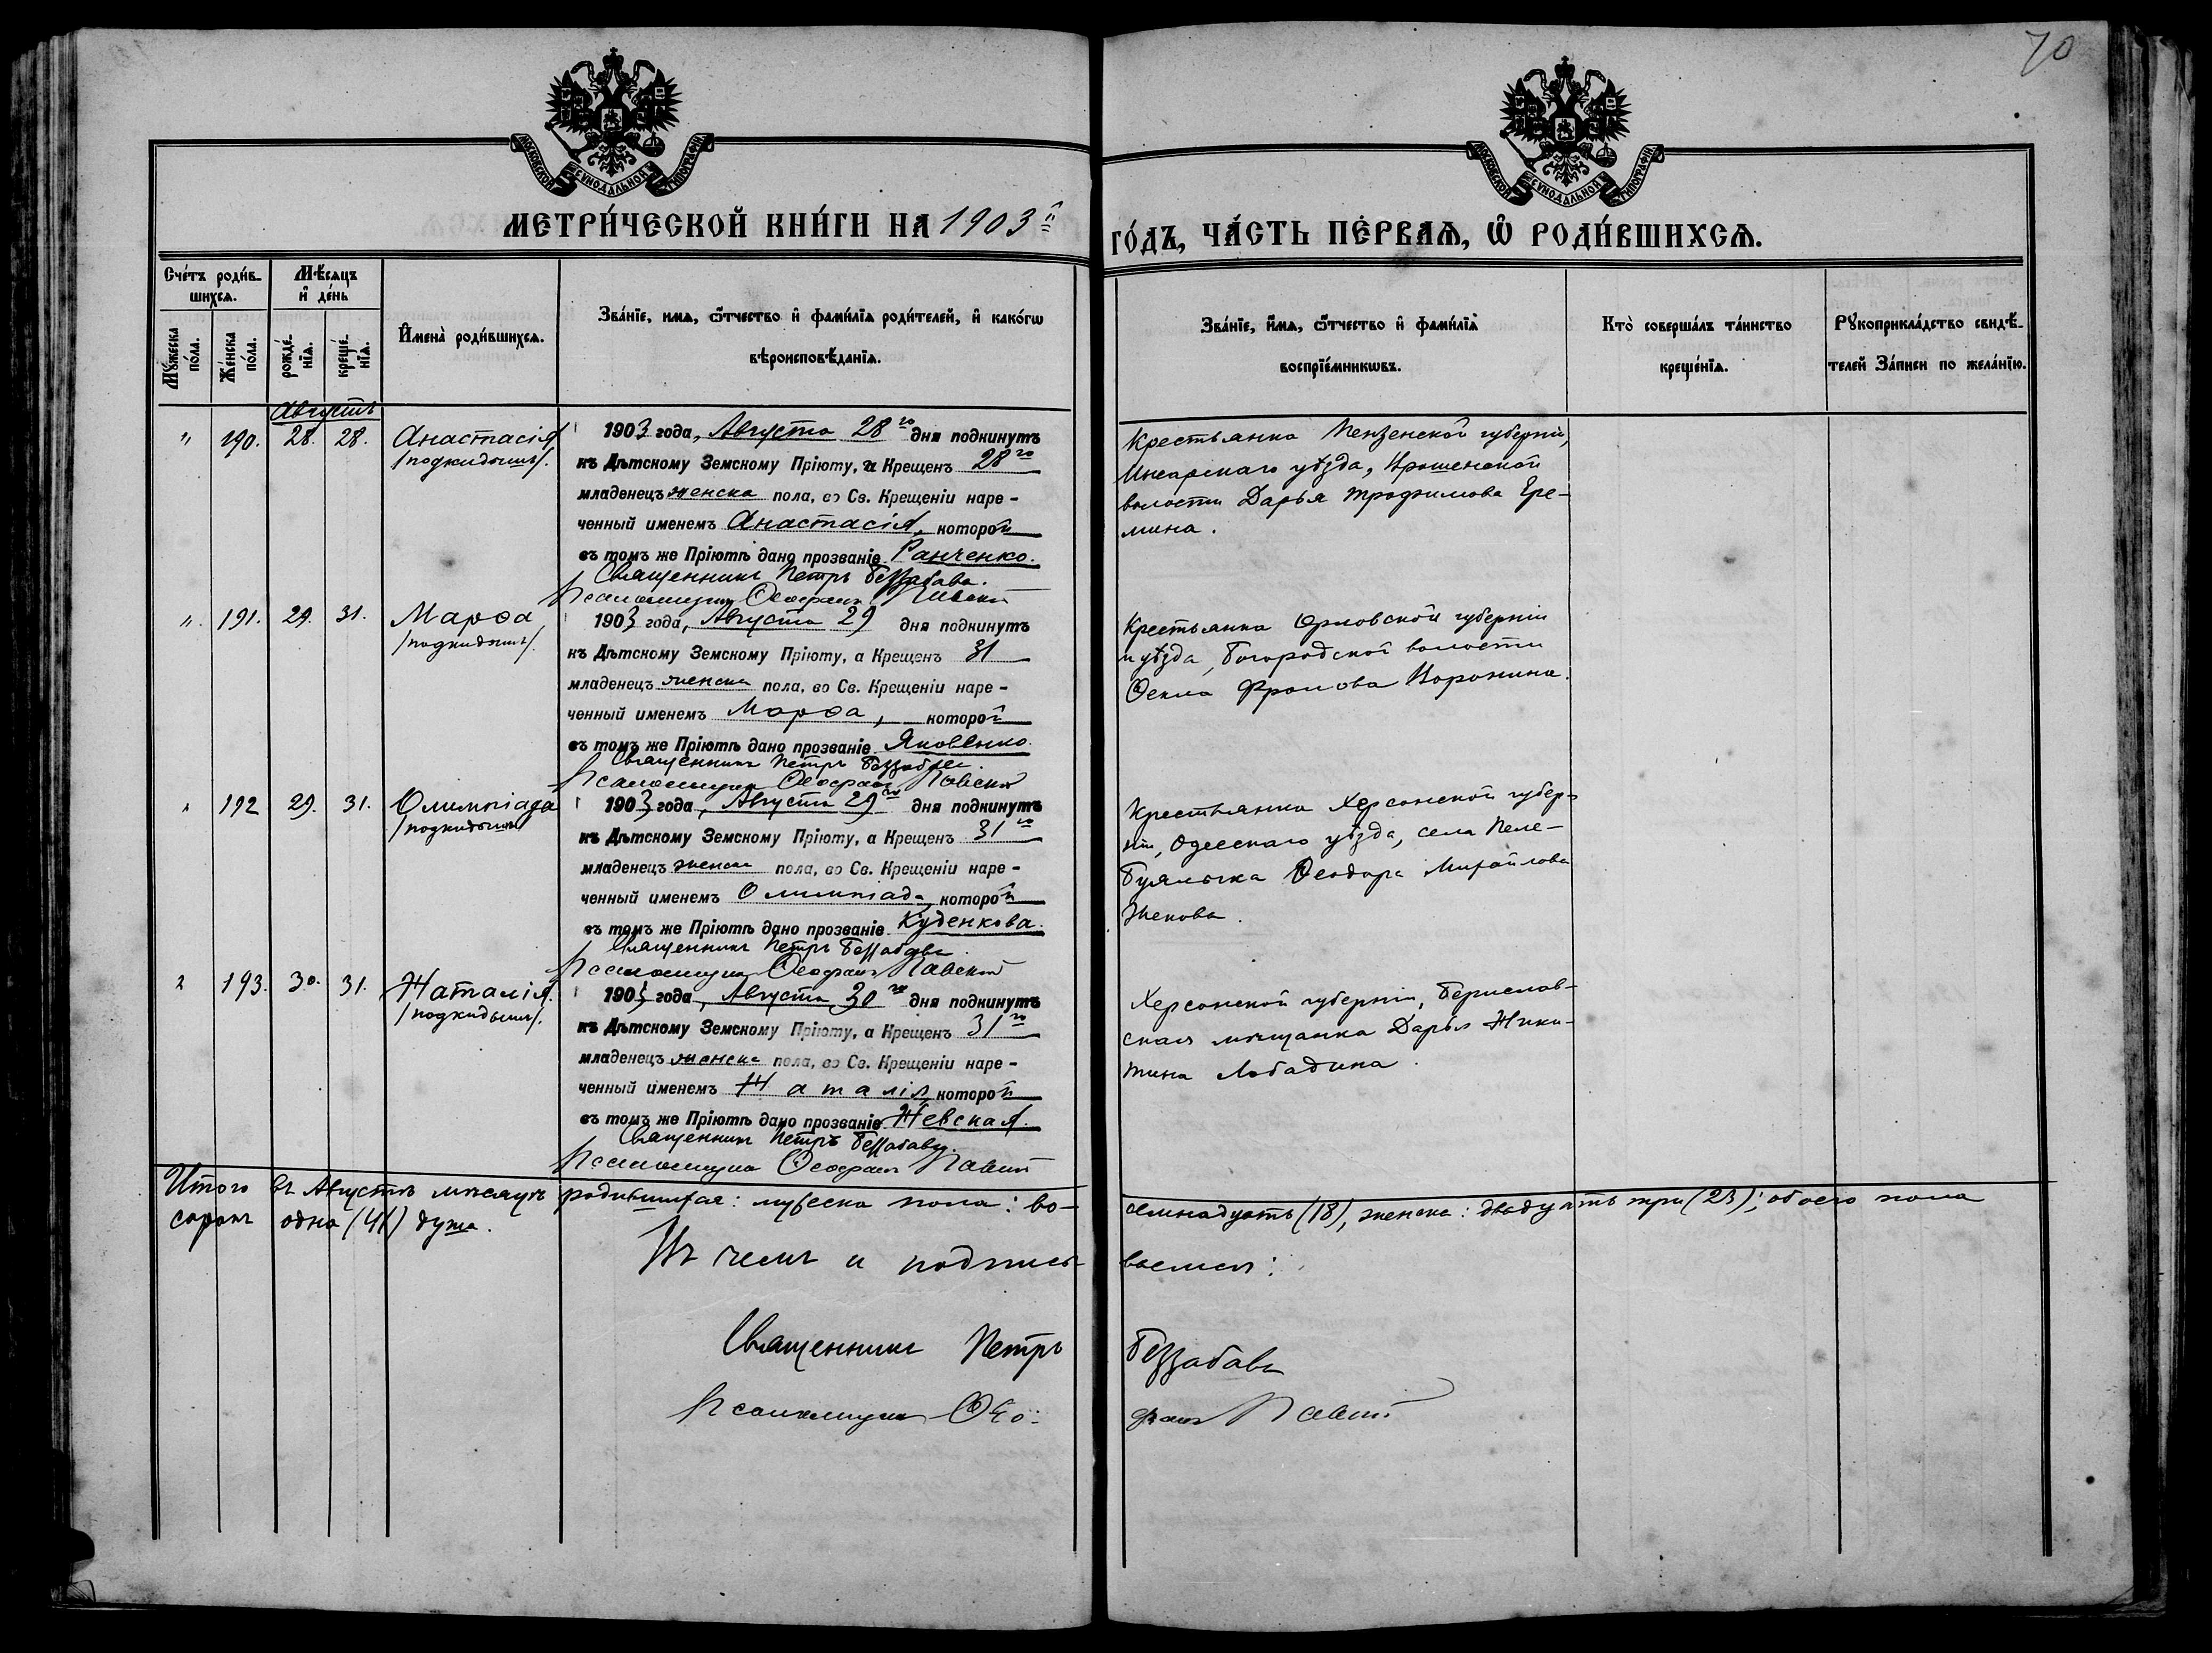 70
МОСКОВСКОЙ СѴНОДАЛЬНОЙ ТИПОГРАФІИ
МОСКОВСКОЙ СѴНОДАЛЬНОЙ ТИПОГРАФІИ
МЕТРИ́ЧЕСКОЙ КНИ́ГИ НА 1903й
ГО́ДЪ, ЧА́СТЬ ПЕ́РВАѦ, Ѽ РОДИ́ВШИХСѦ.
Сче́тъ роди́в-
шихсѧ.
Мꙋ́жеска по́ла.
Же́нска по́ла.
Мѣ́сѧцъ
и҆ де́нь
рожде́-
нїѧ.
креще́-
нїѧ.
И҆мена̀ роди́вшихсѧ.
Зва́нїе, имѧ, ѿтчество и҆ фами́лїѧ роди́телей, и҆ како́гѡ
вѣроисповѣ́данїѧ.
Зва́нїе, и҆мѧ, ѿтчество и҆ фами́лїѧ
воспрїе́мникѡвъ.
Кто̀ соверша́лъ та́инство
креще́нїѧ.
Рꙋкоприкла́дство свидѣ́-
телей За́писи по жела́нїю.
Августъ
" 190. 28. 28. Анастасія
/подкидышъ/.
1903 года, Августа 28го дня подкинутъ
къ Дѣтскому Земскому Пріюту, а Крещенъ 28го
младенецъ женска пола, во Св. Крещеніи наре-
ченный именемъ Анастасія, которой
въ томъ же Пріютѣ дано прозваніе Ранченко.
Священникъ Петръ Беззабава.
Псаломщикъ Ѳеофанъ Павскій
Крестьянка Пензенской губерніи,
Инсарскаго уѣзда,
волости Дарья Трофимова Ере-
мина.
". 191. 29. 31. Марѳа
/подкидышъ/.
1903 года, Августа 29 дня подкинутъ
къ Дѣтскому Земскому Пріюту, а Крещенъ 31
младенецъ женска пола, во Св. Крещеніи наре-
ченный именемъ Марѳа, которой
въ томъ же Пріютѣ дано прозваніе Яковенко.
Священникъ Петръ Беззабава.
Псаломщикъ Ѳеофанъ Павскій
Крестьянка Орловской губерніи
и уѣзда, Богородской волости
Ѳекла Фролова Воронина.
" 192 29. 31. Олимпіада
/подкидышъ/
1903 года, Августа 29го дня подкинутъ
къ Дѣтскому Земскому Пріюту, а Крещенъ 31го
младенецъ женска пола, во Св. Крещеніи наре-
ченный именемъ Олимпіада, которой
въ томъ же Пріютѣ дано прозваніе Куденкова.
Священникъ Петръ Беззабава.
Псаломщикъ Ѳеофанъ Павскій
Крестьянка Херсонской губер-
ніи, Одесскаго уѣзда, села
Буялыка Ѳеодора Михайлова
Жекова.
" 193. 30. 31. Наталія.
/подкидышъ/.
1903 года, Августа 30го дня подкинутъ
къ Дѣтскому Земскому Пріюту, а Крещенъ 31го
младенецъ женска пола, во Св. Крещеніи наре-
ченный именемъ Наталія, которой
въ томъ же Пріютѣ дано прозваніе Невская.
Священникъ Петръ Беззабава.
Псаломщикъ Ѳеофанъ Павскій
Херсонской губерніи, Берислав-
ская мѣщанка Дарья Ники-
тина Лободина.
Итого въ Августѣ мѣсяцѣ родившихся: мужеска пола: во-
семнадцать (18), женска: двадцать три (23); обоего пола
сорокъ одна (41) душа.
Въ чемъ и подписы-
ваемся:
Священникъ Петръ
Беззабава
Псаломщикъ Ѳео-
фанъ Павскій